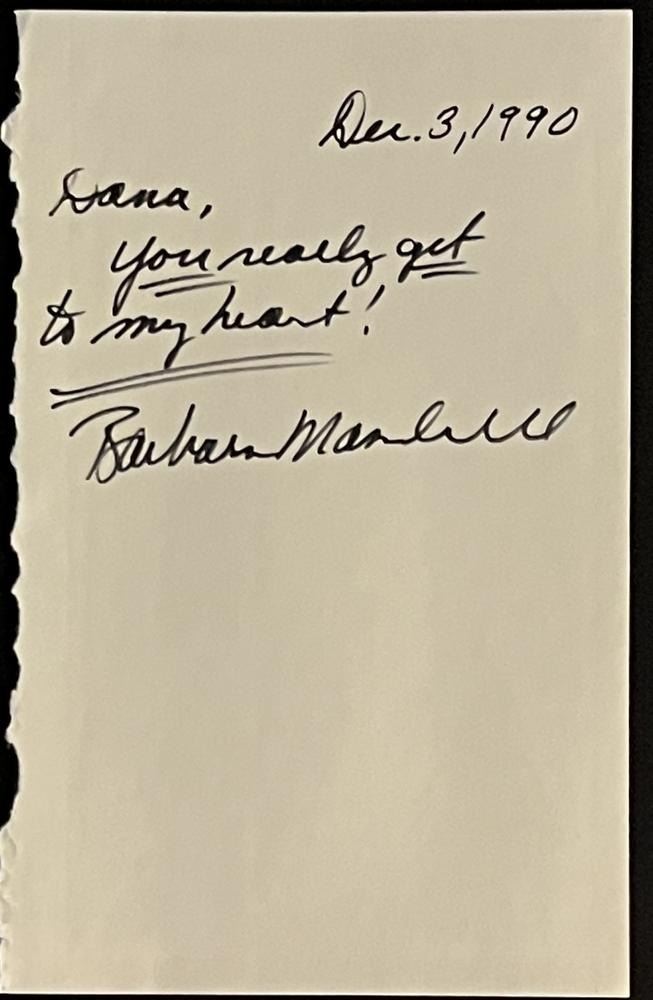 Dec. 3, 1990
Dana,
you really get
to my heart!
Barbara Mandrell